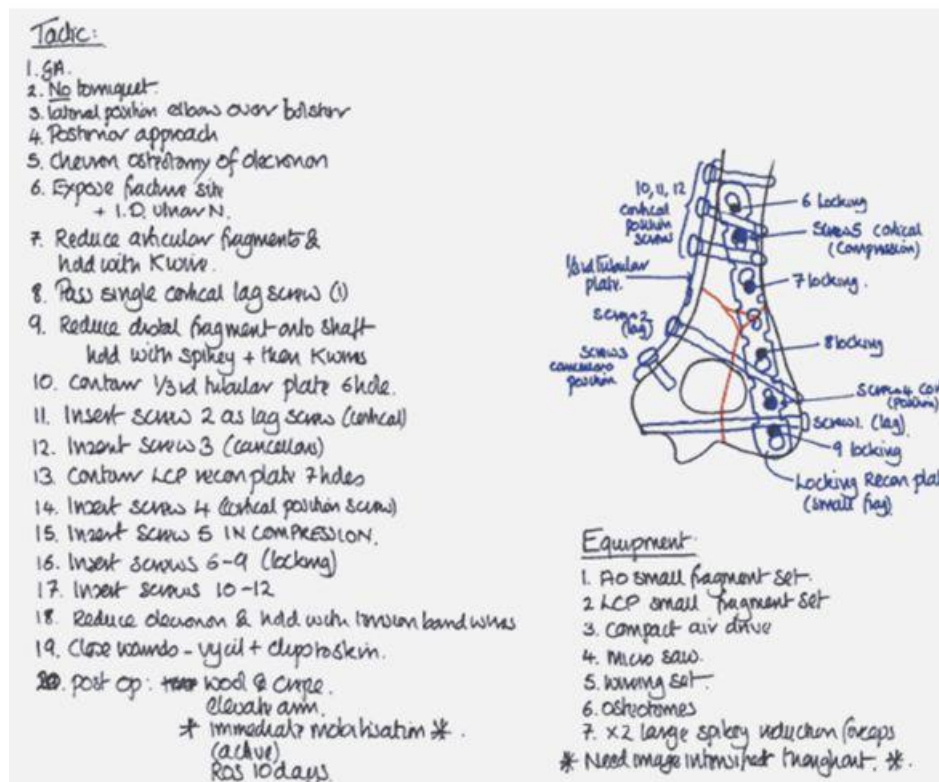 Tactic:
1. GA.
2. No torniquet.
3. lateral position elbow over bolster
4. Posterior approach
5. Chevron osteotomy of olecranon
6. Expose fracture site
+ I.D. Ulnar N.
7. Reduce articular fragments &
hold with Kwire.
8. Pass single cortical lag screw (1)
9. Reduce distal fragment onto shaft
hold with spikey + then Kwires
10. Contour 1/3rd tubular plate 6hole.
11. Insert screw 2 as lag screw (cortical)
12. Insert screw 3 (cancellous)
13. Contour LCP recon plate 7holes
14. Insert screw 4 (cortical position screw)
15. Insert screw 5 IN COMPRESSION.
16. Insert screws 6-9 (locking)
17. Insert screws 10-12
18. Reduce olecranon & hold with tension band wires
19. Close wounds - vycil + clips to skin.
20. post op: wool & crepe.
elevate arm.
* immediate mobilisation *.
(active)
ROS 10 days.
10, 11, 12
cortical
position
screw
1/3rd tubular
plate.
screw 2
(lag)
screw 3
cancellous
position
6 locking
screw 5 cortical
(compression)
7 locking.
8 locking
screw 4 co
(position)
screw 1. (lag)
9 locking
Locking Recon plat
(small frag)
Equipment
1. AO small fragment set.
2 LCP small fragment set
3. Compact air drive
4. Micro saw.
5. wiring set.
6. Osteotomes
7. x2 large spikey reduction forceps
* Need image intensifier throughout. *.